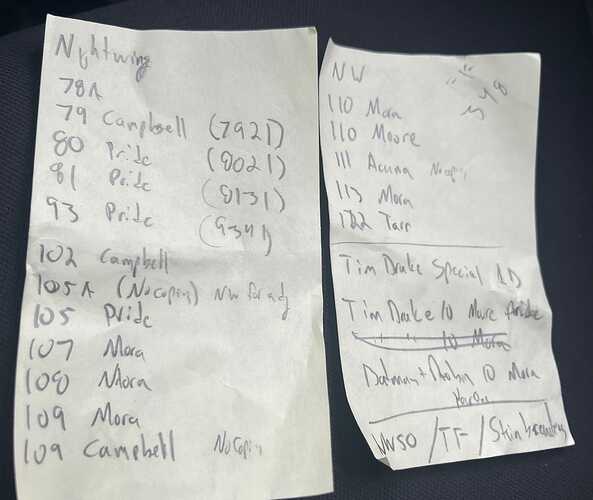 Nightwing
78A
79 Campbell (7921)
80 Pride (8021)
81 Pride (8131)
93 Pride (9341)
102 Campbell
105A (No copies) NW for adj
105 Pride
107 Mora
108 Mora
109 Mora
109 Campbell No Copies
NW
110 Mora
110 Moore
111 Acuna No copies
113 Mora
122 Tarr
Tim Drake Special
Tim Drake 10 Pride
10 Mora
Batman + Robin 10 Mora
/ TF /